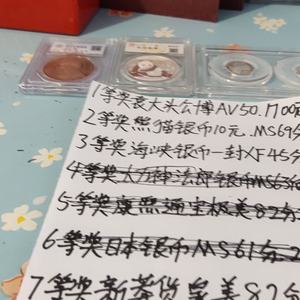 1等奖袁大头公博AV50.1700
2等奖熊猫银币10元.MS69
3等奖海峡银币一封XF45分
4等奖大万神法郎银币MS63
5等奖康熙通宝极美82分
6等奖日本银币MS61分
7等奖新莽货泉美82分